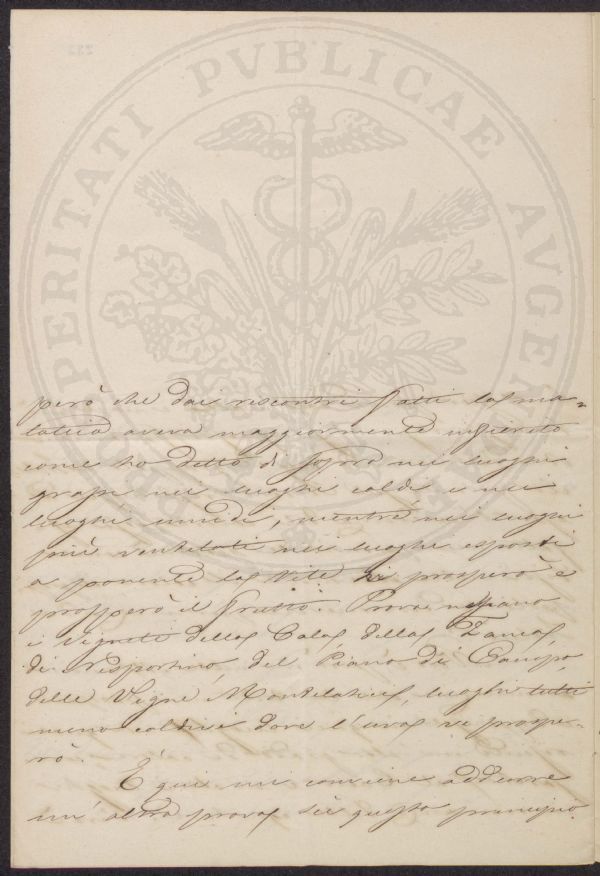 PROSPERITATI PVBLICAE AVGENDAE
però che dai riscontri fatti la ma=
lattia aveva maggiormente infierito
come ho detto di sopra nei luoghi
grassi nei luoghi caldi e nei
luoghi umidi, mentre nei luoghi
più ventilati nei luoghi esposti
a ponente la vite vi prosperò e
prosperò il frutto. Prova ne siano
i vigneti della Cala, della
di Vespertino, del Piano di Campo,
delle Vigne luoghi tutti
meno caldi i dove l'uva vi prospe-
rò.
E qui mi conviene addurre
un' altra prova su questo principio